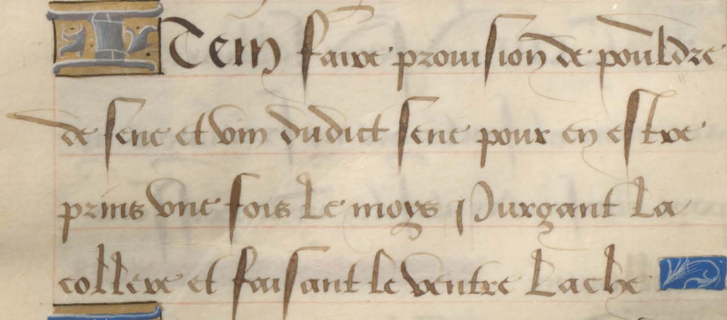 Item faire prouision de pouldre
de sene et vin dudict sene pour en estre
prins vne fois le moys Purgant la
collere et faisant le ventre lache